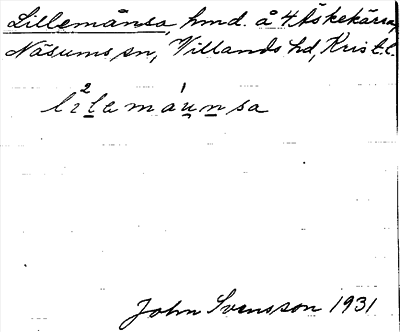 Lillemånsa, hmd. å 4 Äskekärr,
Näsums sn, Villands hd, Krist.l.
lɪ²lemáu̲n̲sa
John Svensson 1931